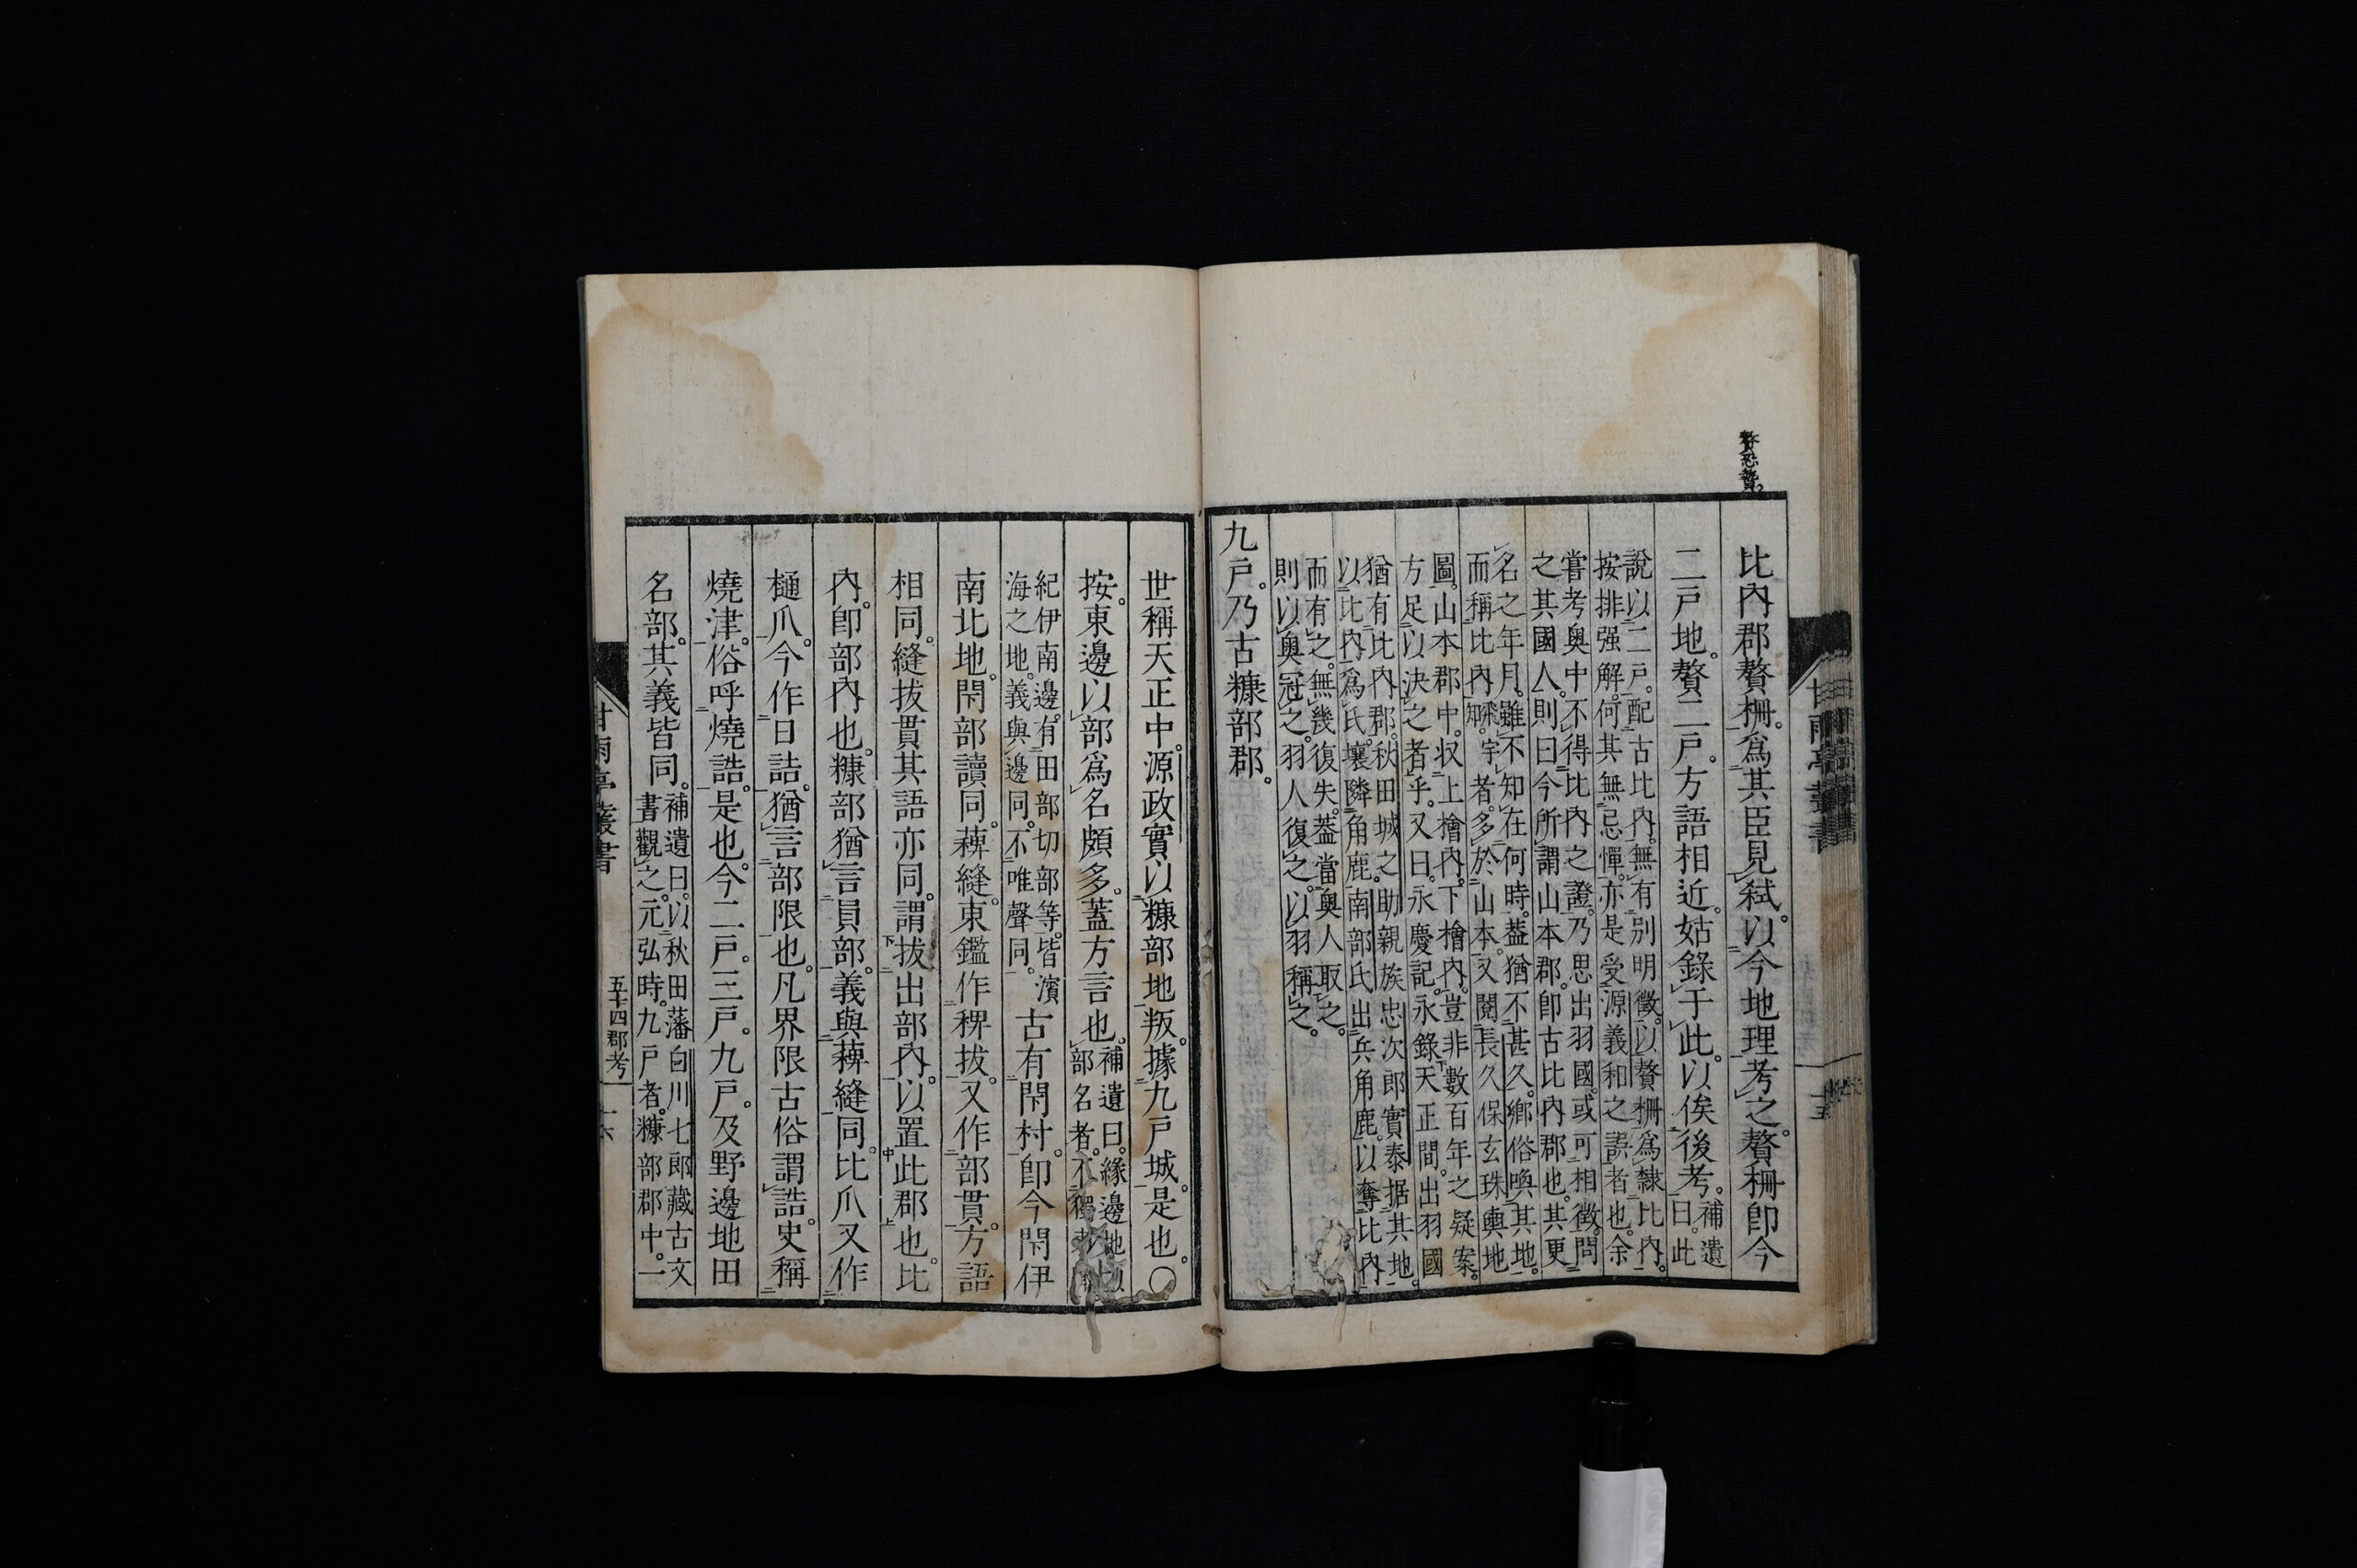 比內郡贅柵爲其臣見弒以今地理考之贅柵卽今
二戶地贅二戶方語相近姑錄于此以俟後考補遺曰此
說以二戶配古比內無有別明徵以贅柵爲隸比內
按排强解何其無忌憚亦是受源義和之誤者也余
嘗考奧中不得比內之證乃思出羽國或可相徵問
之其國人則曰今所謂山本郡卽古比內郡也其更
名之年月雖不知在何時蓋猶不甚久鄉俗喚其地
而稱比內宇者多於山本又閱長久保玄珠輿地
圖山本郡中收上檜內下檜內豈非數百年之疑案
方足以決之者乎又曰永慶記永錄天正間出羽國
猶有比內郡秋田城之助親族忠次郎實泰据其地
以比內爲氏壤隣角鹿南部氏出兵角鹿以奪比內
而有之無幾復失蓋當奧人取之
則以奧冠之羽人復之以羽稱之
九戶乃古糠部郡
世稱天正中源政實以糠部地叛據九戶城是也〇
按東邊以部爲名頗多蓋方言也補遺曰緣邊地
部名者不獨
紀伊南邊有田部切部等皆濱
海之地義與邊同不唯聲同古有閇村卽今閇伊
南北地閇部讀同䅹縫東鑑作稗拔又作部貫方語
相同縫拔貫其語亦同謂拔出部內以置此郡也比
內卽部內也糠部猶言員部義與䅹縫同比爪又作
樋爪今作日詰猶言部限也凡界限古俗謂詰史稱
燒津俗呼燒誥是也今二戶三戶九戶及野邊地田
名部其義皆同補遺曰以秋田藩白川七郎藏古文
書觀之元弘時九戶者糠部郡中一
甘雨亭叢書
五十四郡考
十六